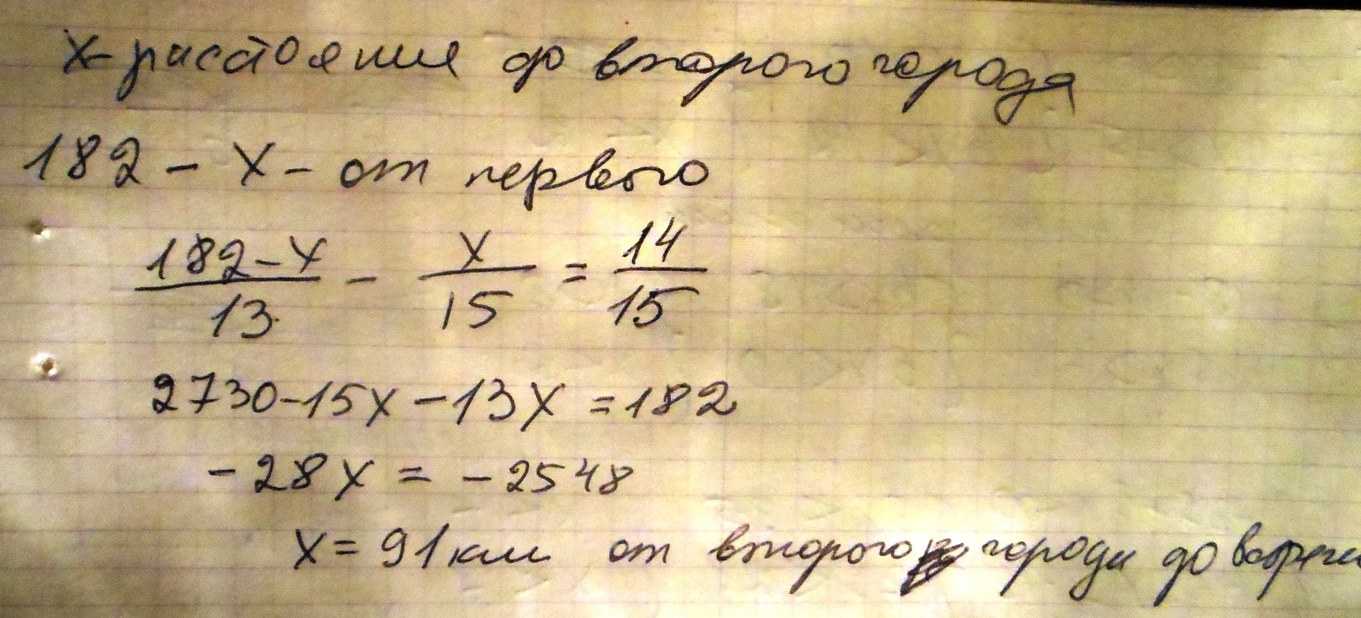 x - расстояние до второго города
182 - x - от первого
(182-x)/13 - x/15 = 14/15
2730-15x-13x=182
-28x = -2548
x = 91 км от второго города до встречи